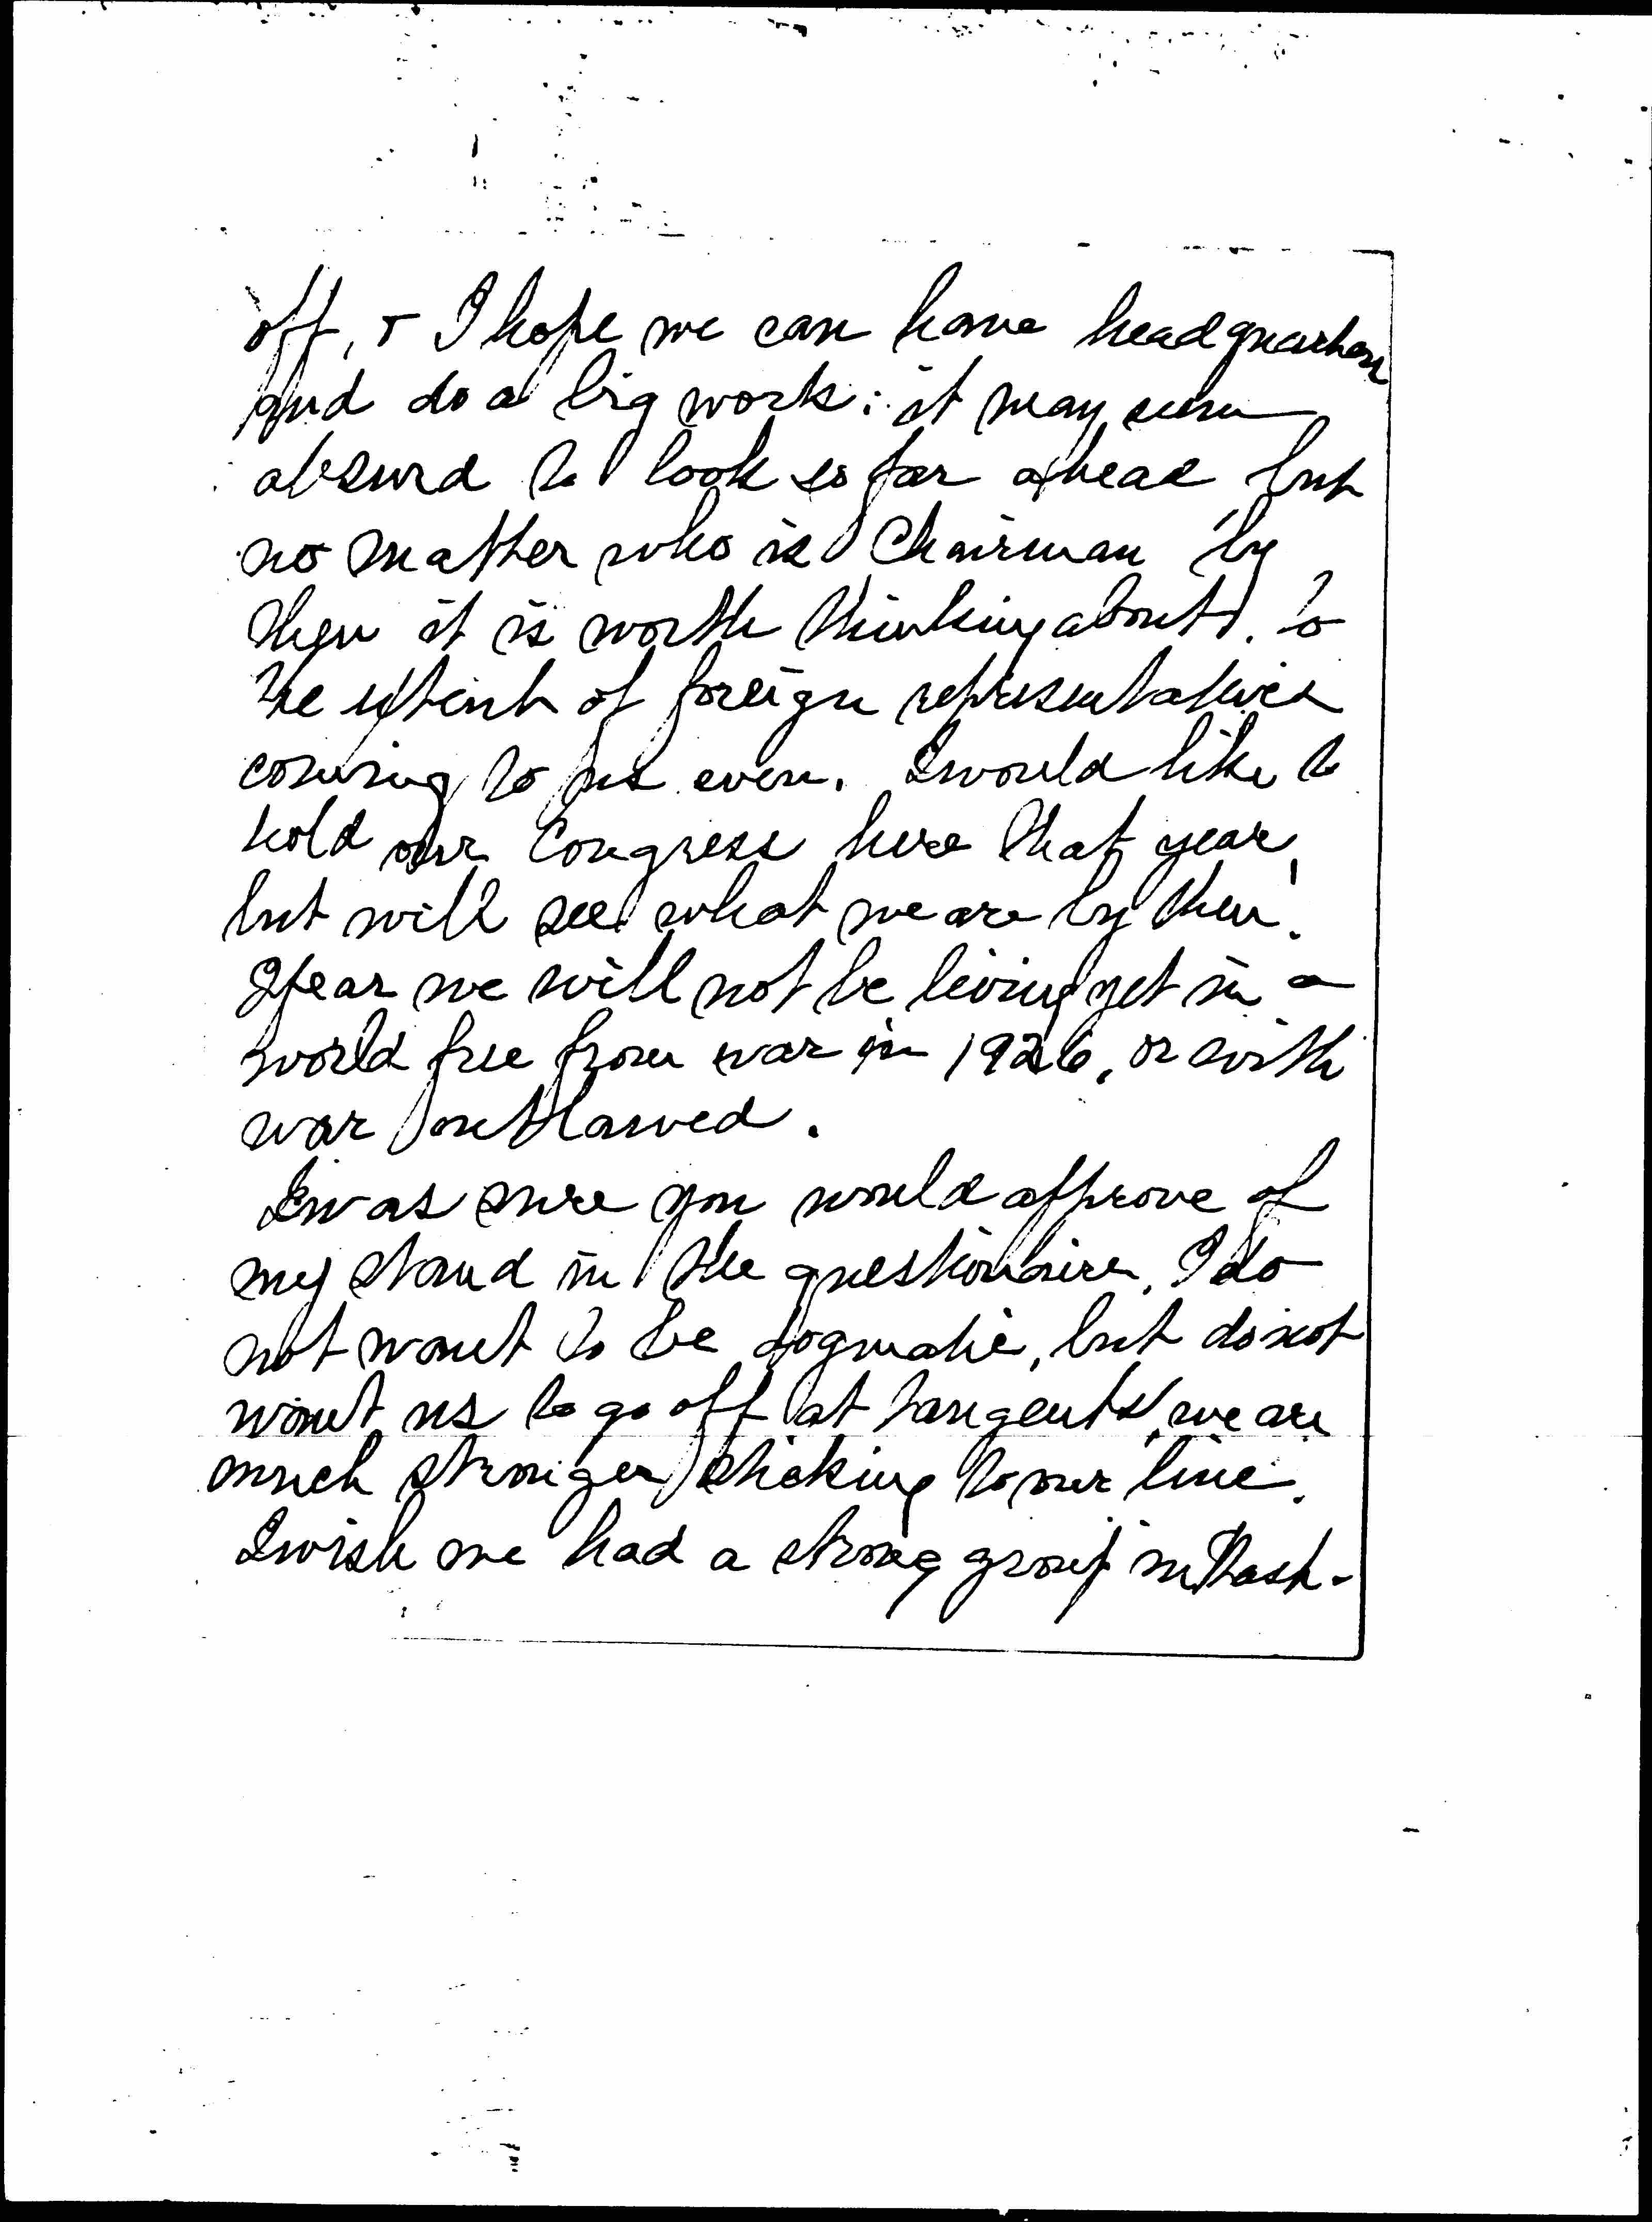 off, & I hope we can have headquarters
and do a big work: it may seem
absurd to look so far ahead, but
no matter who is Chairman by
then it is worth thinking about, to
the extent of foreign representatives
coming to us even. I would like to
hold our Congress here that year,
but will see what we are by then.
I fear we will not be living yet in a
world free from war in 1926, or with
war outlawed.
I was sure you would approve of
my stand in the questionaire. I do
not want to be dogmatic, but do not
want us to go off at tangents, we are
much stronger sticking to our line.
I wish we had a strong group in Wash-